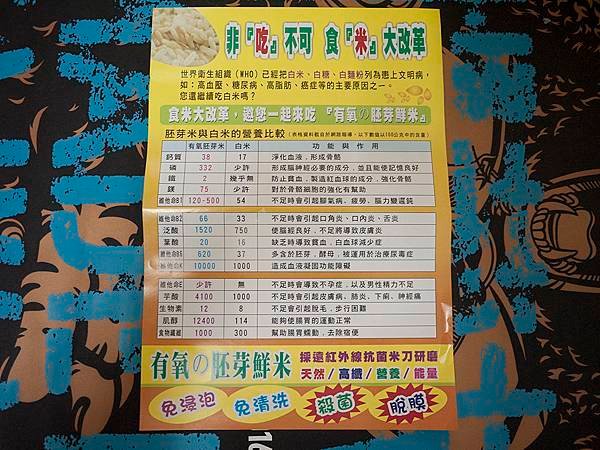 非『吃』不可 食『米』大改革
世界衛生組織(WHO)已經把白米、白糖、白麵粉列為患上文明病,
如:高血壓、糖尿病、高脂肪、癌症等的主要原因之一。
您還繼續吃白米嗎?
食米大改革,邀您一起來吃『有氧の胚芽鮮米』
胚芽米與白米的營養比較(表格資料截自於網路報導,以下數值以100公克中的含量)
有氧胚芽米 白米 功能與作用
鈣質 38 17 淨化血液,形成骨骼
磷 332 少許 形成腦神經必要的成分,並且能使記憶良好
鐵 2 幾乎無 防止貧血,製造紅血球的成分,強化骨骼
鎂 75 少許 對於骨骼細胞的強化有幫助
維他命B1 120-500 54 不足時會引起腳氣病、疲勞、腦力變遲鈍
維他命B2 66 33 不足時會引起口角炎、口內炎、舌炎
泛酸 1520 750 使腦經良好,不足將導致皮膚炎
葉酸 20 16 缺乏時導致貧血,白血球減少症
維他命B6 620 37 多含於胚芽,酵母,被運用於治療尿毒症
維他命K 10000 1000 造成血液凝固功能障礙
維他命E 少許 無 不足時會導致不孕症,以及男性精力不足
芋酸 4100 1000 不足時會引起皮膚病、肺炎、下痢、神經痛
生物素 12 8 不足會引起脫毛,步行困難
肌醇 12400 114 能夠使腸胃的運動正常
食物纖維 1000 300 幫助腸胃蠕動,去除宿便
有氧の胚芽鮮米 採遠紅外線抗菌米刀研磨
天然/高纖/營養/能量
免浸泡 免清洗 殺菌 脫膜